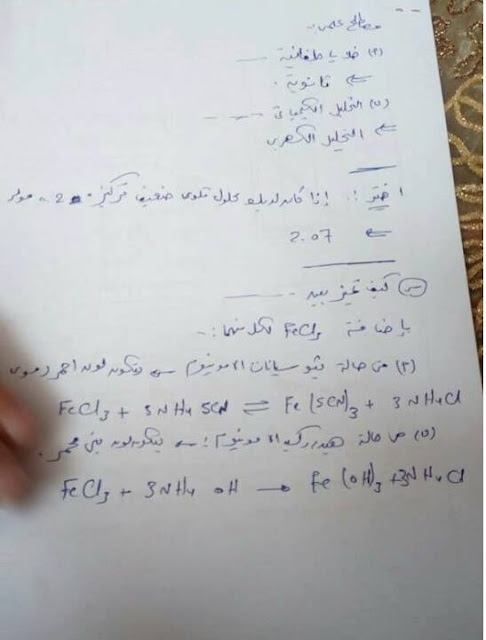 مصطلح علمى :-
(٢) خلايا جلفانية ---
⇐ ثانوية .
(٥) التحليل الكيميائى - - - -
⇐ التحليل الكهربى
اختر :. إذا كان لديك محلول قلوى ضعيف تركيز 0.2 مولر
⇐ 2.07
(س) كيف تميز بين --------
بإضافة FeCl3 لكل منهما :-
(٢) فى حالة ثيوسيانات الامونيوم يتكون لون احمر دموى
FeCl3 + 3NH4 SCN ⇌ Fe(SCN)3 + 3 NH4Cl
(٥) فى حالة هيدروكسيد الامونيوم :- يتكون لون بنى محمر .
FeCl3 + 3NH4 OH → Fe(OH)3 + 3NH4Cl